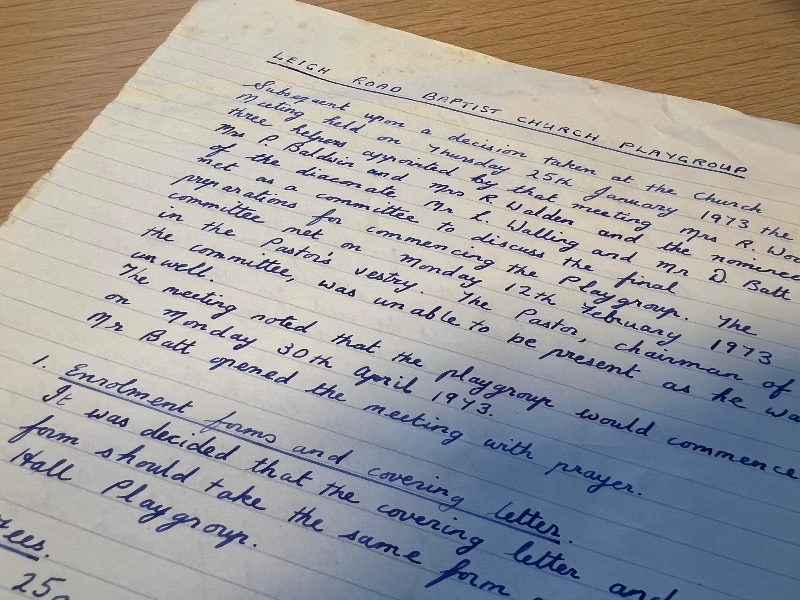 LEIGH ROAD BAPTIST CHURCH PLAYGROUP
Subsequent upon a decision taken at the Church
Meeting held on Thursday 25th January 1973 the
three helpers appointed by that meeting Mrs R.
Mrs P. Baldwin and Mrs R Walden and the nominees
of the diaconate Mr L. Walling and Mr D. Batt
met as a committee to discuss the final
preparations for commencing the Playgroup. The
committee met on Monday 12th February 1973
in the Pastor's vestry. The Pastor, chairman of
the committee, was unable to be present as he was
unwell.
The meeting noted that the playgroup would commence
on Monday 30th April 1973.
Mr Batt opened the meeting with prayer.
1. Enrolment forms and covering letter.
It was decided that the covering letter and
form should take the same form
Hall Playgroup.
Fees.